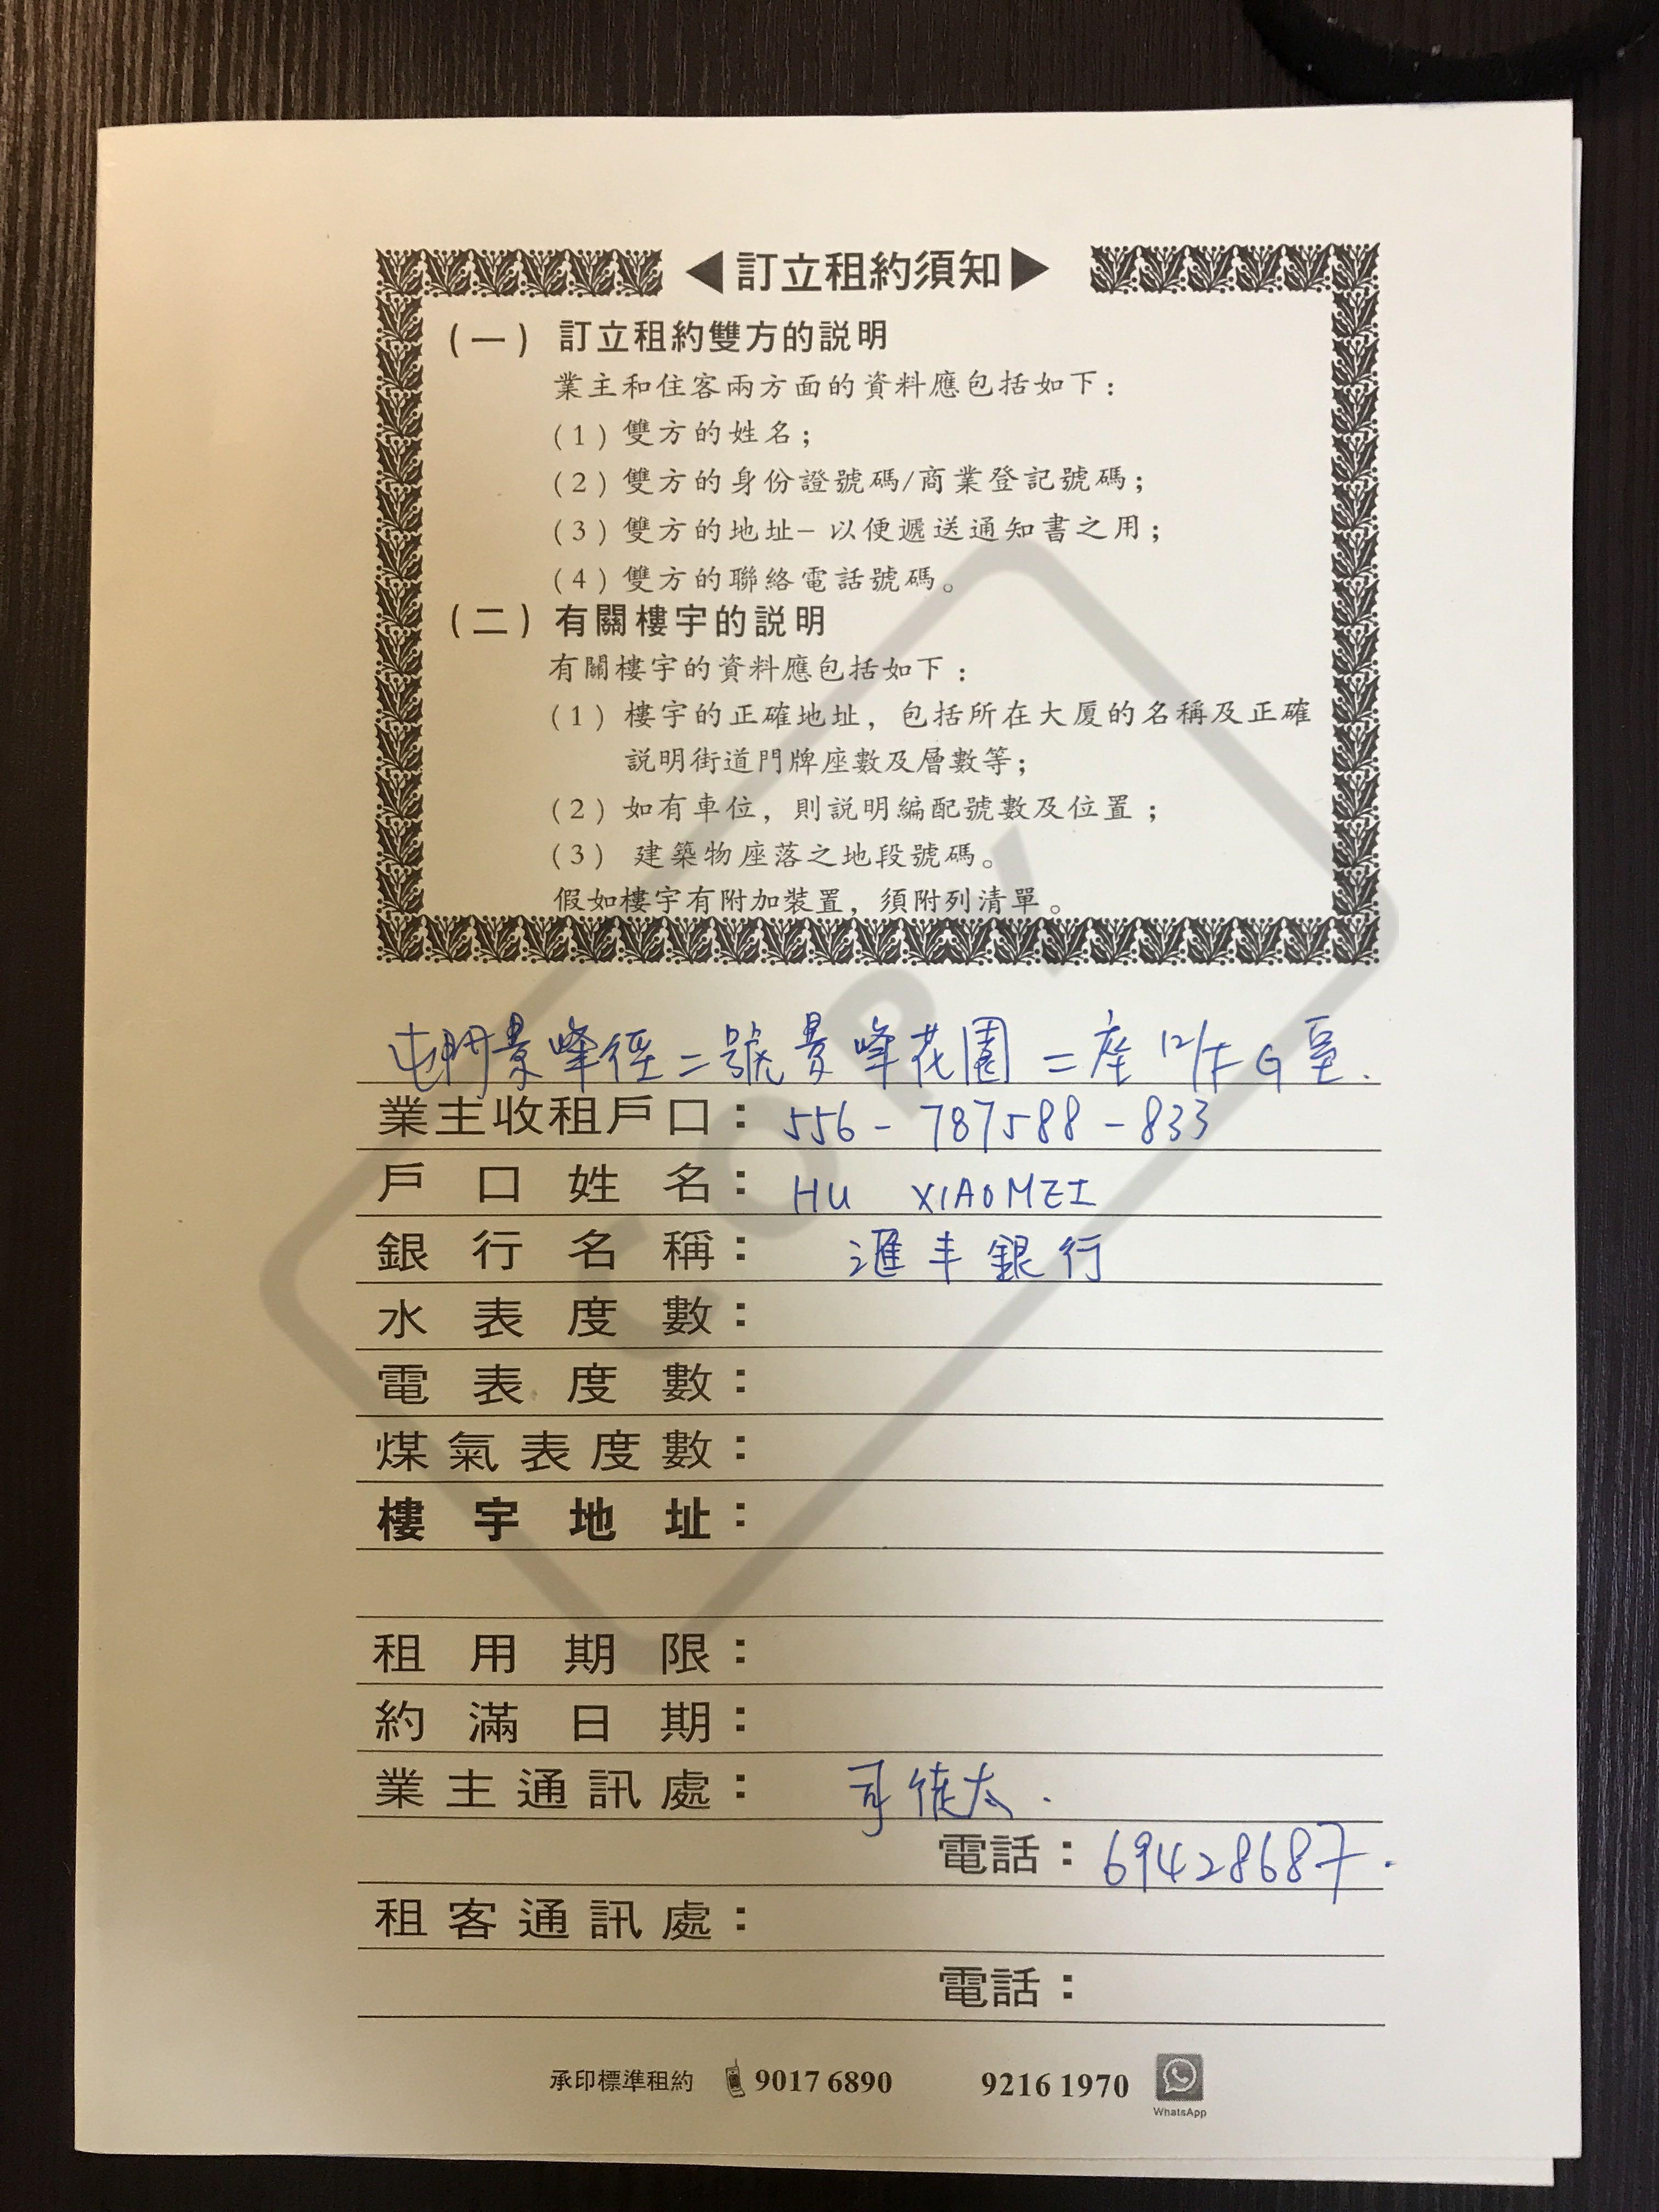 ◀訂立租約須知▶
(一) 訂立租約雙方的説明
業主和住客兩方面的資料應包括如下：
(1) 雙方的姓名；
(2) 雙方的身份證號碼/商業登記號碼；
(3) 雙方的地址－以便遞送通知書之用；
(4) 雙方的聯絡電話號碼。
(二) 有關樓宇的説明
有關樓宇的資料應包括如下：
(1) 樓宇的正確地址，包括所在大厦的名稱及正確
説明街道門牌座數及層數等；
(2) 如有車位，則説明編配號數及位置；
(3) 建築物座落之地段號碼。
假如樓宇有附加裝置，須附列清單。
COPY
屯門景峰徑二號景峰花園二座12/F G室.
業主收租戶口：556-787588-833
戶口姓名：HU XIAOMEI
銀行名稱：滙丰銀行
水表度數：
電表度數：
煤氣表度數：
樓宇地址：
租用期限：
約滿日期：
業主通訊處：司徒太.
電話：69428687.
租客通訊處：
電話：
承印標準租約 9017 6890 9216 1970
WhatsApp